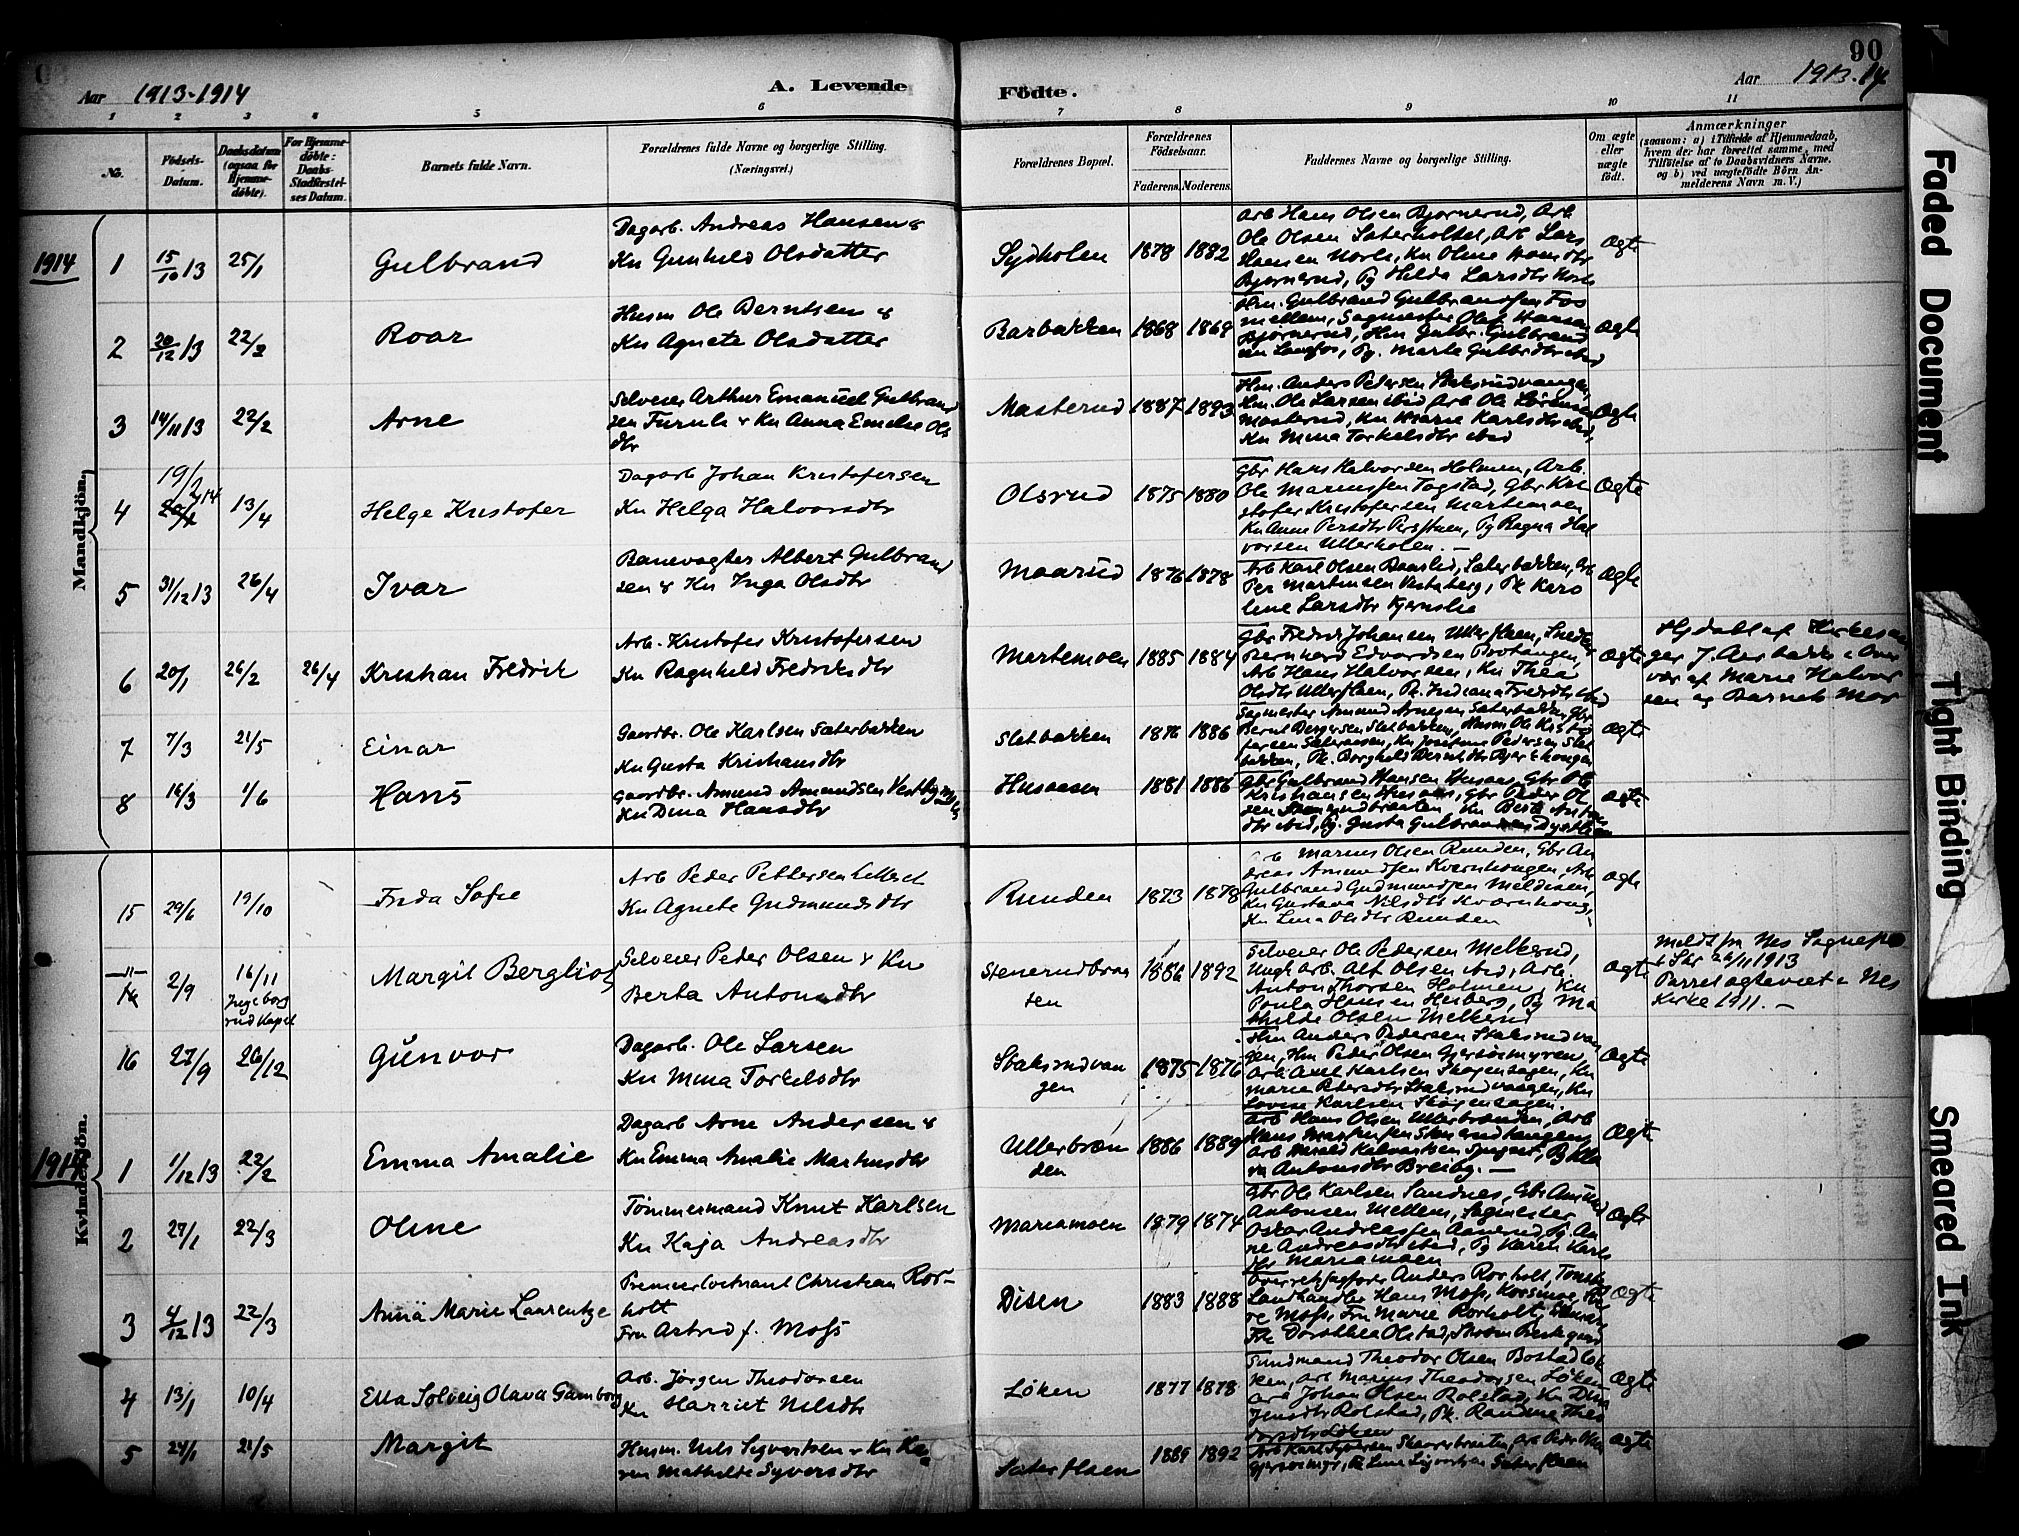 90
Aar 1913-1914
A. Levende
Födte.
Aar 1913-14
1 2 3 4 5 6 7 8 9 10 11
No.
Födsels-Datum.
Daabsdatum (ogsaa for Hjemme-döbte).
For Hjemme-döbte: Daabs-Stadfæstel-ses Datum.
Barnets fulde Navn.
Forældrenes fulde Navne og borgerlige Stilling.
(Næringsvei.)
Forældrenes Bopæl.
Forældrenes Födselsaar.
Faderens. Moderens.
Faddernes Navne og borgerlige Stilling.
Om ægte eller uægte födt.
Anmærkninger
(saasom: a) i Tilfælde af Hjemmedaab,
hvem der har forrettet samme, med
Tilföielse af to Daabsvidners Navne.
og b) ved uægtefödte Börn An-
melderens Navn m. V.)
Mandkjön.
1914
1 15/10 13 25/1 Gulbrand
Dagarb. Andreas Hansen &
Kn Gunhild Olsdatter
Sydholen 1878 1882
Arb Hans Olsen Bjørnerud, Arb
Ole Olsen Saterholtet, Arb Lars
Hansen Norli, Kn Oline Hansdtr
Bjørnerud, Pg Hilda Larsdtr
Ægte
2 20/12 13 22/2 Roar
Husm Ole Berntsen &
Kn Agnete Olsdatter
Barbakken 1868 1869
Hm. Gulbrand Gulbrandsen Fos
mellem, Sagmester Olaf Hansen
Bjørnerud, Hm Gulbr. Gulbrand
sen Langfos, Pg. Marta Gulbrdtr ibid
Ægte
3 14/11 13 22/2 Arne
Selveier Arthur Emanuel Gulbrand
sen Furuli & Kn Anna Emelie Ols
dtr
Masterud 1887 1893
Hm. Anders Pedersen Staksrudvangen,
Hm. Ole Larsen ibid Arb Ole Sørensen
Masterud, Kn Marie Karlsdtr ibid,
Kn Mina Torkelsdtr ibid
Ægte
4 19/2 14 13/4 Helge Kristofer
Dagarb Johan Kristofersen
Kn Helga Halvorsdtr
Olsrud 1875 1880
Gbr Hans Halvorsen Holmen, Arb.
Ole Mariussen Togstad, Gbr Kri
stofer Kristofersen Martemoen
Kn Anne Persdtr Persstuen, Pg Ragna Hal
vorsen Utterholen. —
Ægte
5 31/12 13 26/4 Ivar
Banevogter Albert Gulbrand
sen & Kn Inga Olsdtr
Maarud 1876 1878
Arb Karl Olsen Baaslid, Saterbakken, Arb
Per Martinsen Vestaberg, Pk Karo
line Larsdtr Kjernslie
Ægte
6 20/1 26/2 26/4 Kristian Fredrik
Arb. Kristofer Kristofersen
Kn Ragnhild Fredriksdtr
Martemoen 1885 1884
Gbr Fredrik Johansen Utterflaen, Snedker
Bernhard Edvardsen Brotangen,
Arb Hans Halvorsen, Kn Thea
Olsdtr Utterflaen, Pk. Indiana Fredrdtr ibid
Ægte
Hjdøbt af Kirkesan
ger J. Aarbakke i Over
vær af Marie Halvor
sen og Barnets Mor
7 7/3 21/5 Einar
Gaardbr. Ole Karlsen Saterbakken
Kn Gusta Kristiansdtr
Sletbakken 1876 1886
Sagmester Amund Arnesen Saterbakken, Gbr
Bernt Bergersen Sletbakken, Husm Ole Kristo
fersen Sateraasen, Kn Josefine Pedersen Slet
bakken, Pk. Borghild Berntsdtr
Ægte
8 16/3 1/6 Hans
Gaardbr. Amund Amundsen Vestby
Kn Dina Hansdtr
Husaasen 1881 1886
Gbr Gulbrand Hansen Husaas, Gbr Ole
Kristiansen Husaas, Gbr Peder Ol
sen
dtr ibid, Pg. Gusta Gulbrandsen Dystlien
Ægte
Kvindekjön.
15 29/6 19/10 Frida Sofie
Arb Peder Pettersen
Kn Agnete Gudmundsdtr
Runden 1873 1878
Arb Marius Olsen Runden, Gbr An
dreas Amundsen Kvernhougen, Arb
Gulbrand Gudmundsen Meldisen,
Kn Gustava Nilsdtr Kvernhoug,
Kn Lina Olsdtr Runden
Ægte
2/9 16/11
Ingeborg
rud Kapel
Margit Bergliot
Selveier Peder Olsen & Kn
Berta Antonsdtr
Stenerudbraa
ten
1886 1892
Selveier Ole Pedersen Melkerud,
Ungk. Arb. Alf Olsen ibid, Arb.
Anton Thorsen Holmen, Kn
Paula Hansen Heiberg, Pg Ma
thilde Olsen Melkerud
Ægte
Meldt fra Nes Sognepr
i Skr 26/11 1913
Parret ægteviet i Nes
Kirke 1911. —
16 27/9 26/12 Gunvor
Dagarb. Ole Larsen
Kn Mina Torkelsdtr
Staksrudvan
gen
1875 1876
Hm Anders Pedersen Staksrudvan
gen, Hm Peder Olsen Gjersøsmyren,
Arb Axel Karlsen Skogensagen, Kn
Marie Petersdtr Staksrudvangen, Kn
Lovise Karlsen Skogensagen
Ægte
1914
1 1/12 13 22/2 Emma Amalie
Dagarb Arne Andersen &
Kn Emma Amalie Martinsdtr
Utterbræn
den
1886 1889
Arb Hans Olsen Utterbrænden, Arb
Arb Harald
Antonsdtr Breiby. —
Ægte
2 27/1 22/3 Oline
Tømmermand Knut Karlsen
Kn Kaja Andreasdtr
Mariamoen 1879 1874
Gbr Ole Karlsen Sandnes, Gbr Amund
Antonsen Mellem, Sagmester
Oskar Andreassen Aamerud, Pg. An
ne Andreasdtr ibid, Pg Karen Karls
dtr Mariamoen
Ægte
3 4/12 13 22/3 Anna Marie Laurentze
Premierløitnant Christian Ror-
holt
Fru Astrid f. Moss
Disen 1883 1888
Overretssagfører Anders Rorholt, Tomte,
Landhandler Hans Moss, Korsmoe,
Moss, Fru Marie Rorholt,
Frk Dorothea Olstad,
Ægte
4 13/1 10/4 Ella Solveig Olava Gamborg
Arb. Jørgen Theodorsen
Kn Harriet Nilsdtr
Løken 1877 1878
Sundmand Theodor Olsen Bostad Løk
ken, Arb Marius Theodorsen Løken
Arb Johan Olsen Rolstad, Kn Dina
Jensdtr Rolstad, Pk. Randine Theo
dorsdtr Løken
Ægte
5 24/1 21/5 Margit
Husm. Nils Syvertsen & Kn Ka
ren Mathilde Syversdtr
Saterflaen 1889 1892
Arb Karl Syversen
Saterflaen
Ægte
Faded Document
Tight Binding
Smeared Ink